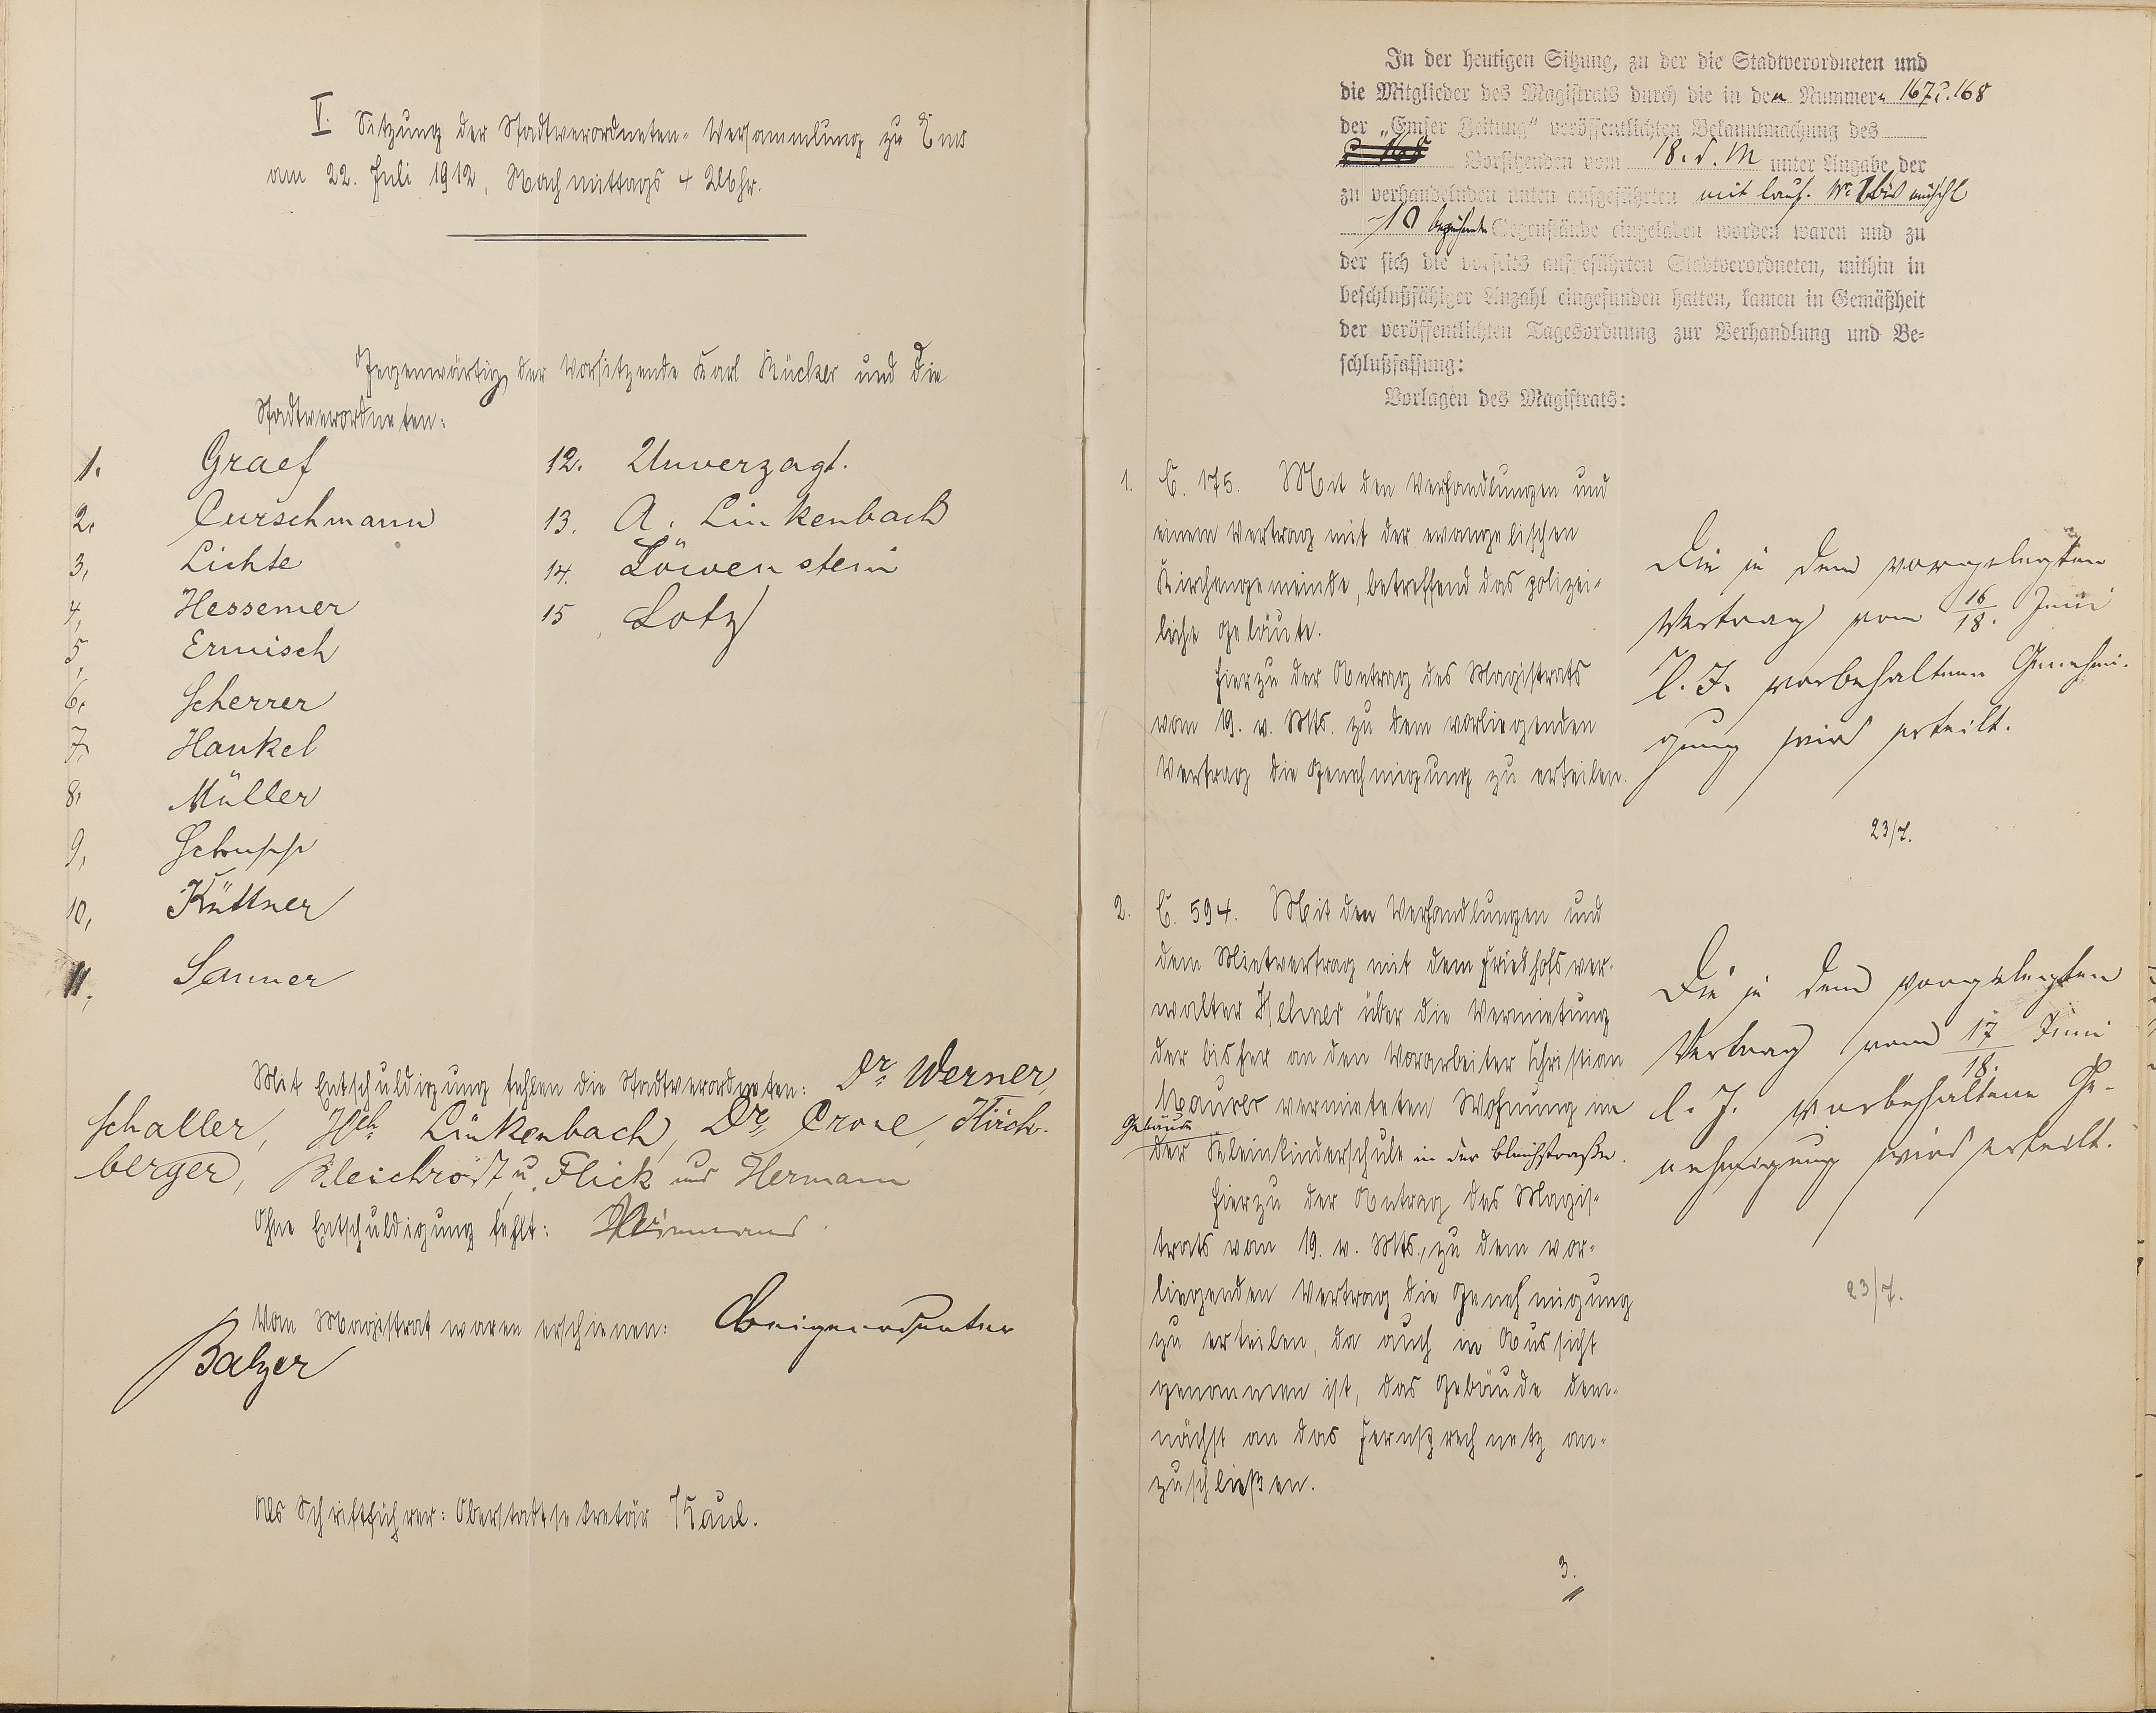 V. Sitzung der Stadtverordneten-Versammlung zu Ems
am 22. Juli 1912, Nachmittags 4 Uhr.
Gegenwärtig der Vorsitzende Karl Rücker und die
Stadtverordneten:
1. Graef
2. Curschmann
3, Lichte
4, Hessemer
5, Ermisch
6. Scherrer
7. Hankel
8. Müller
9, Schupp
10, Küttner
11, Sanner
12. Unverzagt.
13. A. Linkenbach
14. Löwenstein
15 Lotz
Mit Entschuldigung fehlen die Stadtverordneten: Dr. Werner,
Schaller, Hch Linkenbach, Dr. Crone, Hirch-
berger, Bleichrodt u. Flick und Hermann
Ohne Entschuldigung fehlt:
Vom Magistrat waren erschienen: Beigeordneter
Balzer
Als Schriftführer: Oberstadtsekretär Kaul.
In der heutigen Sitzung, zu der die Stadtverordneten und
die Mitglieder des Magistrats durch die in den Nummern 167 u. 168
der „Emser Zeitung" veröffentlichten Bekanntmachung des
Vorsitzenden vom 18. d. M unter Angabe der
zu verhandelnden unten aufgeführten mit lauf. Nr. 1 bis einschl
10 bezeichneten Gegenstände eingeladen worden waren und zu
der sich die vorseits aufgeführten Stadtverordneten, mithin in
beschlußfähiger Anzahl eingefunden hatten, kamen in Gemäßheit
der veröffentlichten Tagesordnung zur Verhandlung und Be-
schlußfassung:
Vorlagen des Magistrats:
1. C. 175. Mit den Verhandlungen und
einem Vertrag mit der evangelischen
Kirchengemeinde, betreffend das polizei-
liche Geläute.
Hierzu der Antrag des Magistrats
vom 19. v. Mts. zu dem vorliegenden
Vertrag die Genehmigung zu erteilen.
Die in dem vorgelegten
Vertrag vom 16/18. Juni
l. J. vorbehaltene Genehmi-
gung wird erteilt.
23/7.
2. C. 594. Mit den Verhandlungen und
dem Mietvertrag mit dem Friedhofsver-
walter Helmer über die Vermietung
der bisher an den Vorarbeiter Christian
Maurer vermieteten Wohnung im
Gebäude
der Kleinkinderschule in der Bleichstraße.
Hierzu der Antrag des Magis-
trats vom 19. v. Mts., zu dem vor-
liegenden Vertrag die Genehmigung
zu erteilen, da auch in Aussicht
genommen ist, das Gebäude dem-
nächst an das Fernsprechnetz an-
zuschließen.
Die in dem vorgelegten
Vertrag vom 17/18. Juni
l. J. vorbehaltene Ge-
nehmigung wird erteilt.
23/7.
3.